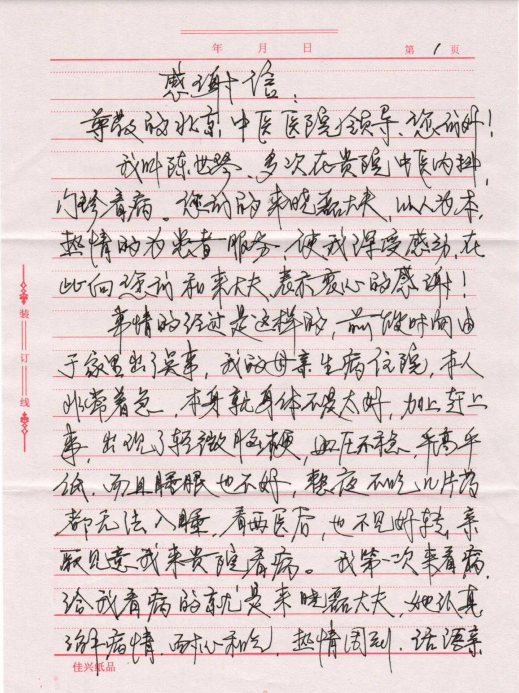 年 月 日 第 1 页
感谢信:
尊敬的北京中医医院领导、您们好!
我叫陈世琴、多次在贵院中医内科
门诊看病。您们的来晓磊大夫,以人为本,
热情的为患者服务,使我深受感动,在
此向您们和来大夫表示衷心的感谢!
事情的经过是这样的,前段时间由
于家里出了点事,我的母亲生病住院,本人
非常着急,本身就身体不是太好,加上赶上
事,出现了轻微脑梗,血压不稳,乎高乎
低,而且睡眠也不好,整夜不吃几片药
都无法入睡,看西医后,也不见好转,亲
朋见意我来贵院看病。我第一次来看病,
给我看病的就是来晓磊大夫,她认真
病情,耐心和气,热情周到,话语亲
装订线
佳兴纸品